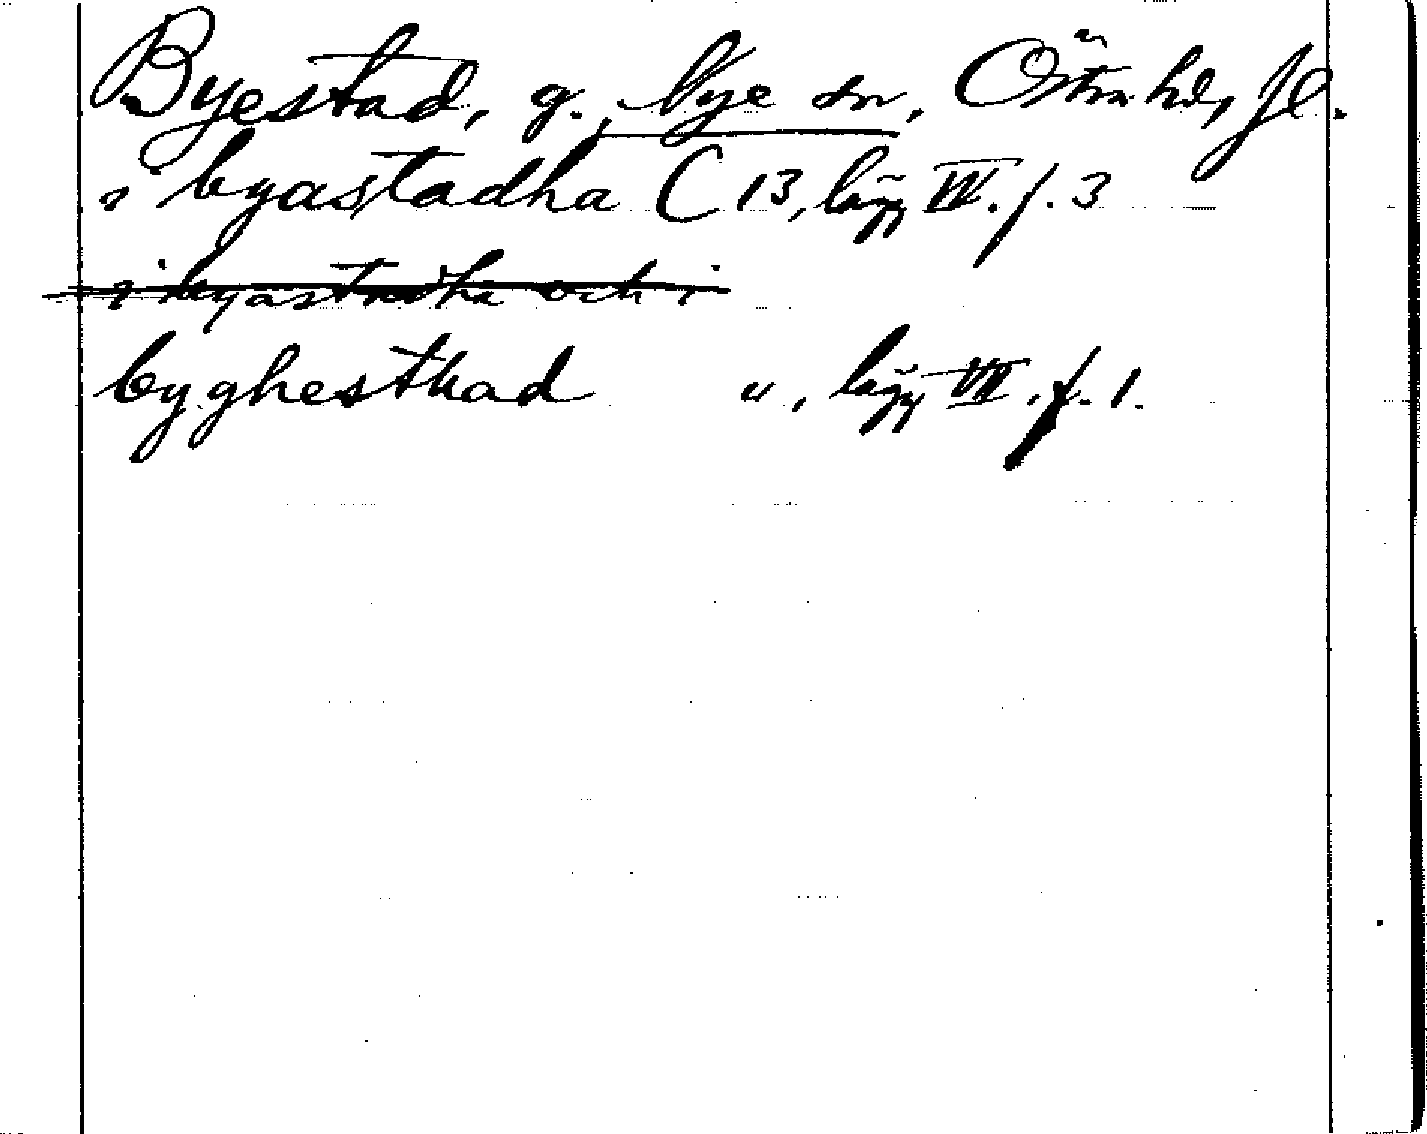 Byestad, g., Nye sn, Östra hd, Jl.
i byastadha C 13, lägg IV. f. 3
i byastadha och i
byghesthad ", lägg VII. f. 1.